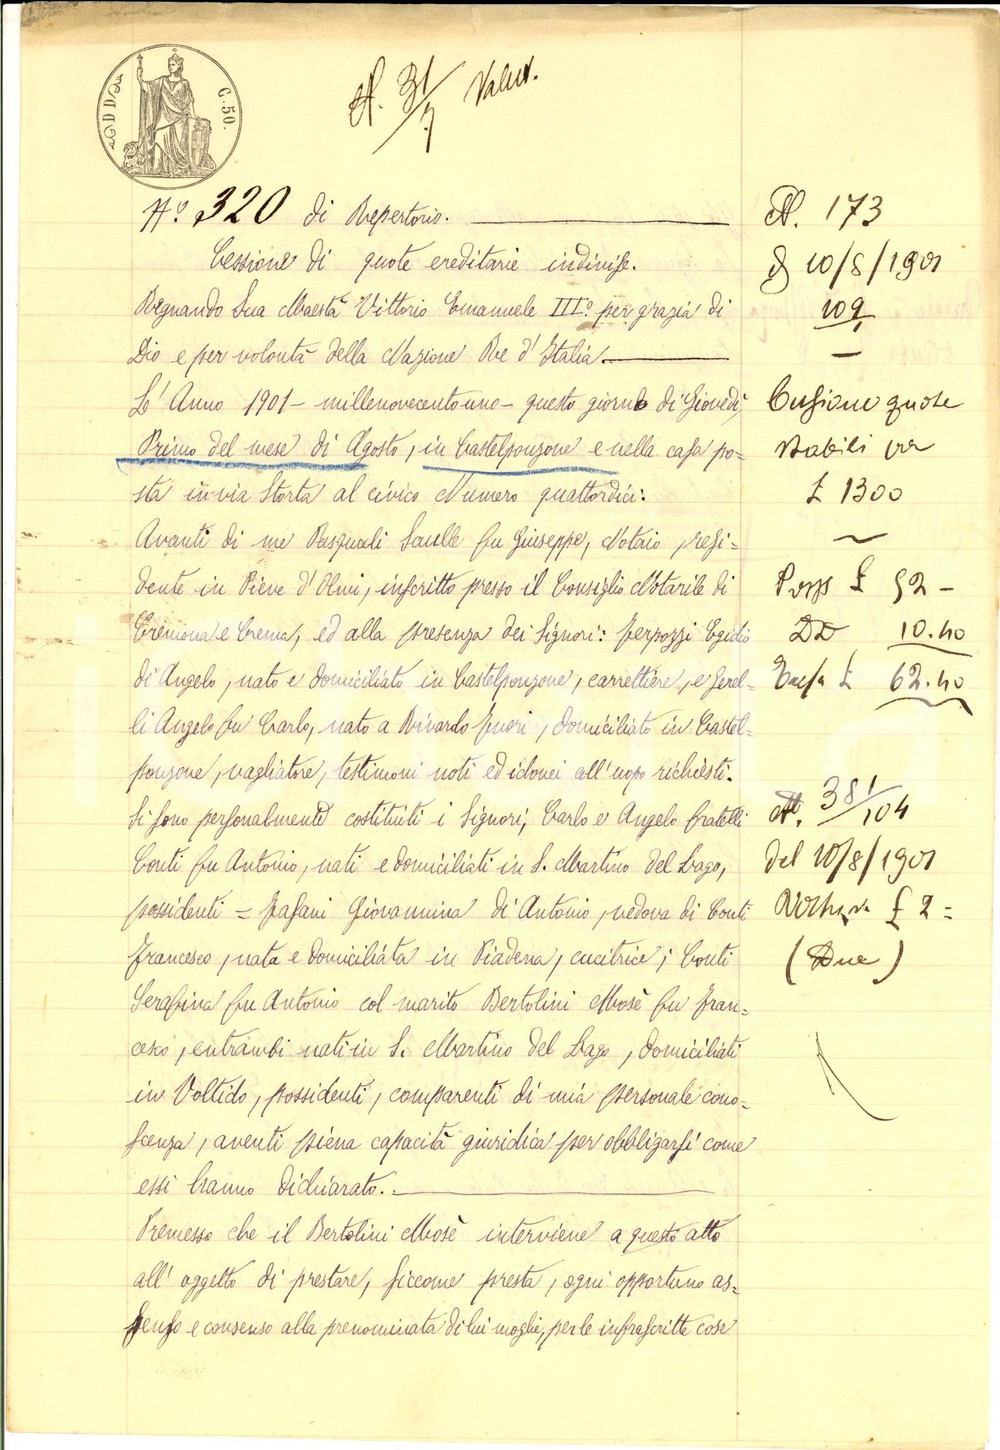 DD
C. 50.
N. 31/7 Valut.
N.º 320 di Repertorio.
Cessione di quote ereditarie indivise.
Regnando Sua Maestà Vittorio Emanuele IIIº per grazia di
Dio e per volontà della Nazione Re d'Italia.
L'Anno 1901 - millenovecentouno - questo giorno di Giovedì,
Primo del mese di Agosto, in Castelponzone e nella casa po=
sta in via Storta al civico Numero quattordici:
Avanti di me Pasquali Saulle fu Giuseppe, Notaio, resi=
dente in Pieve d'Olmi, inscritto presso il Consiglio Notarile di
Cremona e Crema, ed alla presenza dei Signori: Egidio
di Angelo, nato e domiciliato in Castelponzone, carrettiere, e Gerel=
li Angelo fu Carlo, nato a Rivarolo fuori, domiciliato in Castel=
ponzone, vagliatore, testimoni noti ed idonei all'uopo richiesti.
Si sono personalmente costituiti i Signori; Carlo e Angelo fratelli
Conti fu Antonio, nati e domiciliati in S. Martino del Lago,
possidenti = Fasani Giovannina di Antonio, vedova di Conti
Francesco, nata e domiciliata in Piadena, cucitrice; Conti
Serafina fu Antonio col marito Bertolini Mosè fu Fran=
cesco, entrambi nati in S. Martino del Lago, domiciliati
in Voltido, possidenti, comparenti di mia personale cono=
scenza, aventi piena capacità giuridica per obbligarsi come
essi hanno dichiarato.
Premesso che il Bertolini Mosè interviene a questo atto
all'oggetto di prestare, siccome presta, ogni opportuno as=
senso e consenso alla prenominata di lui moglie, per le infrascritte cose
N. 173
10/8/1901
109
Cessione quote
stabili per
£ 1300
Prop £ 52 -
DD 10.40
Tassa £ 62.40
N. 381/104
del 10/8/1901
Voltura £ 2=
(Due)